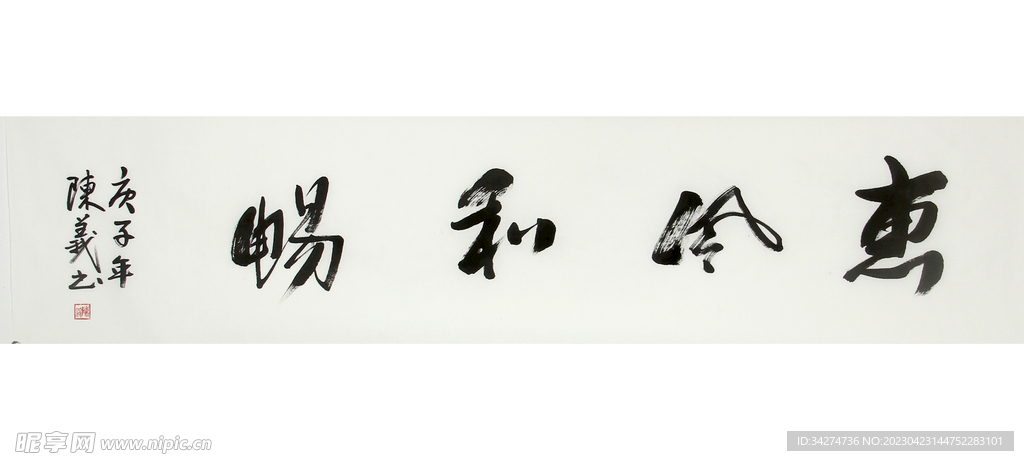 惠风和暢
庚子年
陳義书
昵享网 www.nipic.cn
ID:34274736 NO:20230423144752283101